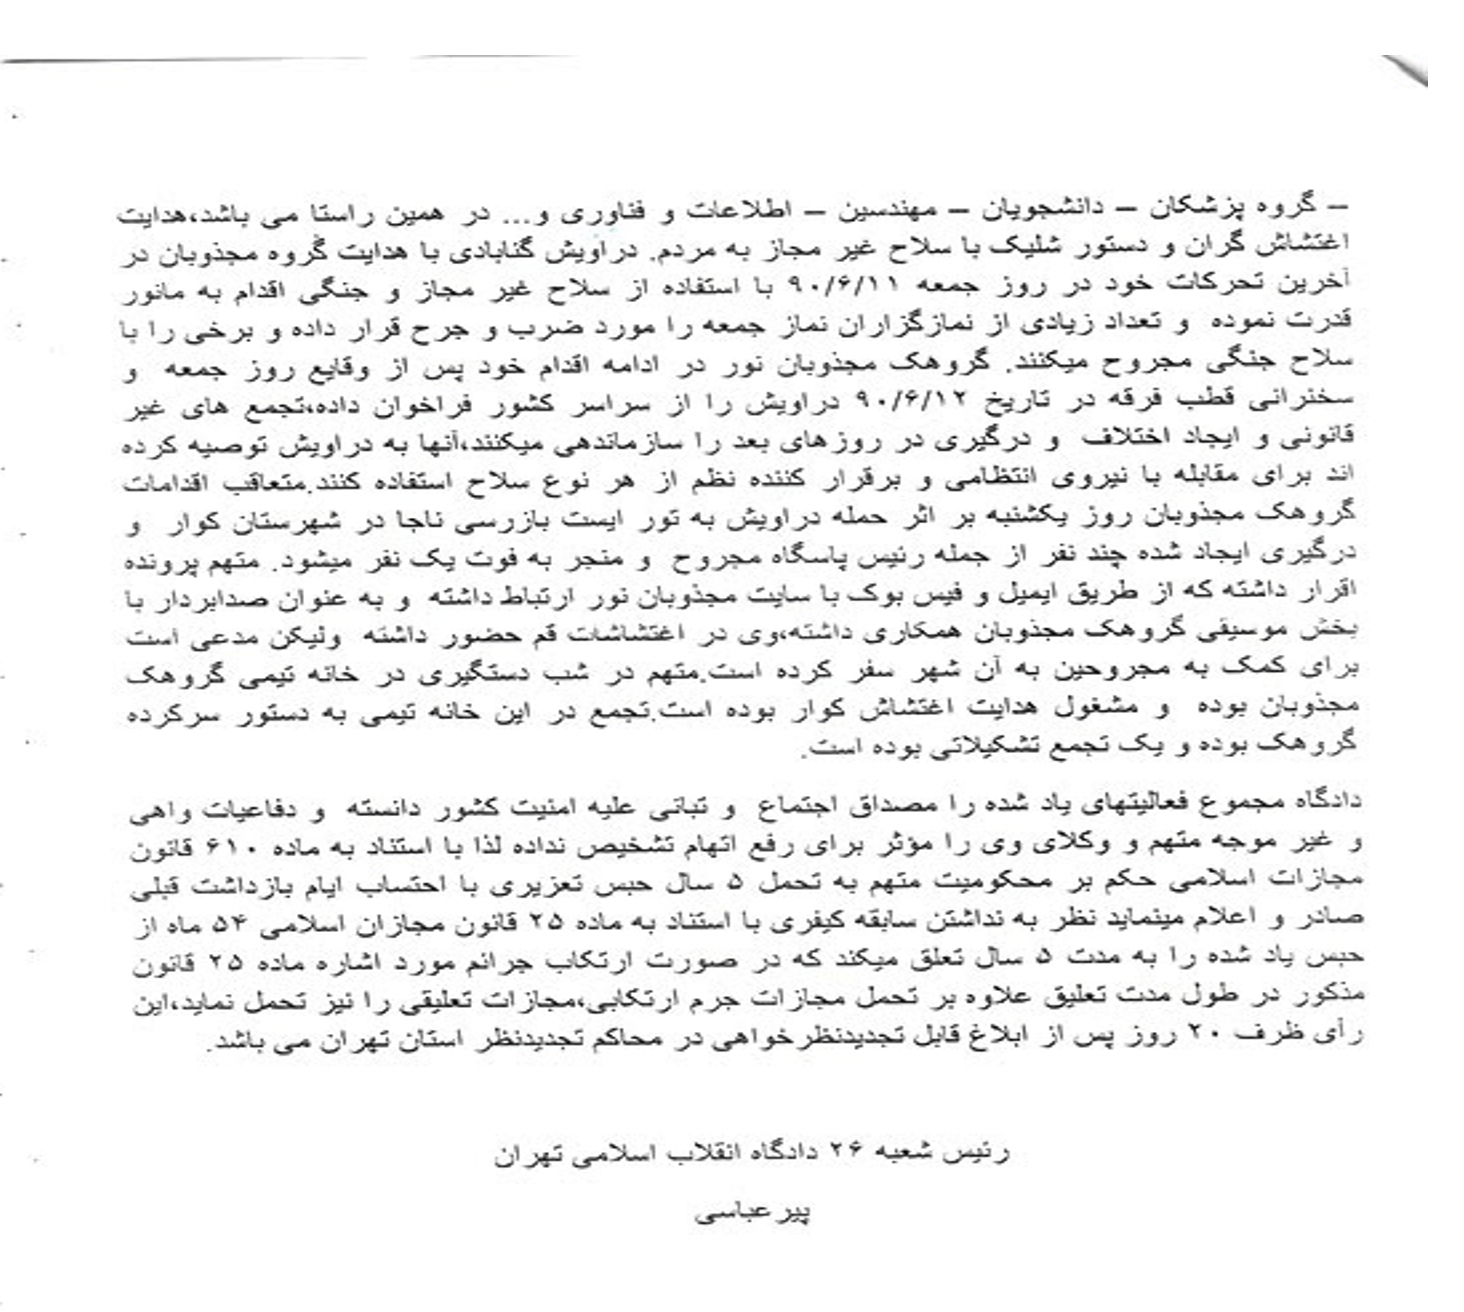 – گروه پزشکان – دانشجویان – مهندسین – اطلاعات و فناوری و... در همین راستا می باشد،هدایت
اغتشاش گران و دستور شلیک با سلاح غیر مجاز به مردم. دراویش گنابادی با هدایت گروه مجذوبان در
آخرین تحرکات خود در روز جمعه ۹۰/۶/۱۱ با استفاده از سلاح غیر مجاز و جنگی اقدام به مانور
قدرت نموده و تعداد زیادی از نمازگزاران نماز جمعه را مورد ضرب و جرح قرار داده و برخی را با
سلاح جنگی مجروح میکنند. گروهک مجذوبان نور در ادامه اقدام خود پس از وقایع روز جمعه و
سخنرانی قطب فرقه در تاریخ ۹۰/۶/۱۲ دراویش را از سراسر کشور فراخوان داده،تجمع های غیر
قانونی و ایجاد اختلاف و درگیری در روزهای بعد را سازماندهی میکنند،آنها به دراویش توصیه کرده
اند برای مقابله با نیروی انتظامی و برقرار کننده نظم از هر نوع سلاح استفاده کنند.متعاقب اقدامات
گروهک مجذوبان روز یکشنبه بر اثر حمله دراویش به تور ایست بازرسی ناجا در شهرستان کوار و
درگیری ایجاد شده چند نفر از جمله رئیس پاسگاه مجروح و منجر به فوت یک نفر میشود. متهم پرونده
اقرار داشته که از طریق ایمیل و فیس بوک با سایت مجذوبان نور ارتباط داشته و به عنوان صدابردار با
بخش موسیقی گروهک مجذوبان همکاری داشته،وی در اغتشاشات قم حضور داشته ولیکن مدعی است
برای کمک به مجروحین به آن شهر سفر کرده است.متهم در شب دستگیری در خانه تیمی گروهک
مجذوبان بوده و مشغول هدایت اغتشاش کوار بوده است.تجمع در این خانه تیمی به دستور سرکرده
گروهک بوده و یک تجمع تشکیلاتی بوده است.
دادگاه مجموع فعالیتهای یاد شده را مصداق اجتماع و تبانی علیه امنیت کشور دانسته و دفاعیات واهی
و غیر موجه متهم و وکلای وی را مؤثر برای رفع اتهام تشخیص نداده لذا با استناد به ماده ۶۱۰ قانون
مجازات اسلامی حکم بر محکومیت متهم به تحمل ۵ سال حبس تعزیری با احتساب ایام بازداشت قبلی
صادر و اعلام مینماید نظر به نداشتن سابقه کیفری با استناد به ماده ۲۵ قانون مجازان اسلامی ۵۴ ماه از
حبس یاد شده را به مدت ۵ سال تعلق میکند که در صورت ارتکاب جرائم مورد اشاره ماده ۲۵ قانون
مذکور در طول مدت تعلیق علاوه بر تحمل مجازات جرم ارتکابی،مجازات تعلیقی را نیز تحمل نماید،این
رأی ظرف ۲۰ روز پس از ابلاغ قابل تجدیدنظرخواهی در محاکم تجدیدنظر استان تهران می باشد.
رئیس شعبه ۲۶ دادگاه انقلاب اسلامی تهران
پیرعباسی